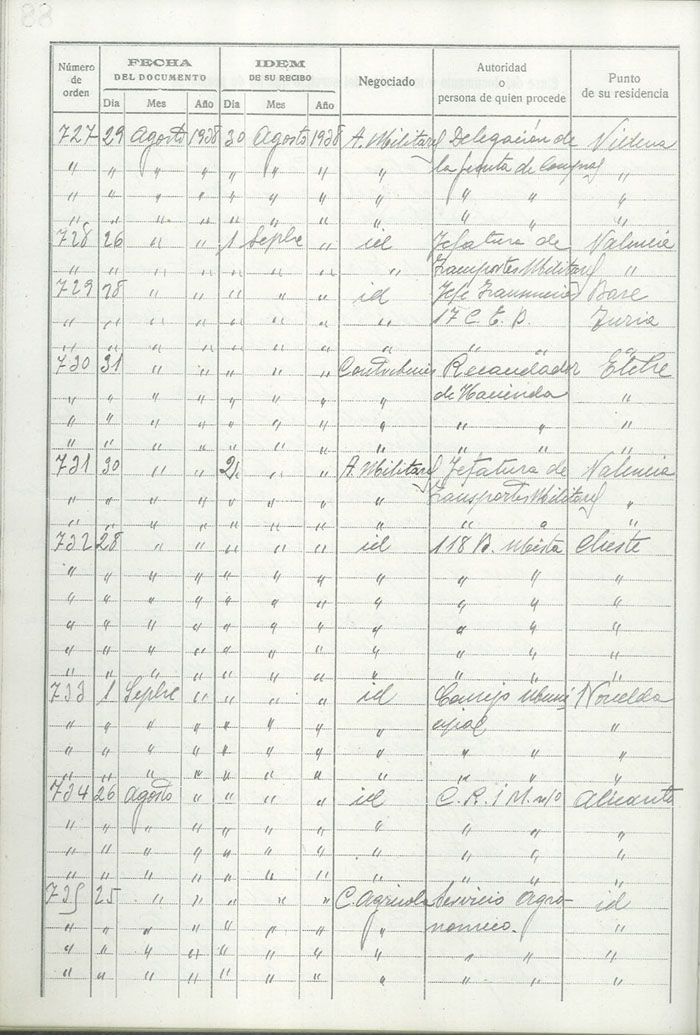 Número de orden FECHA DEL DOCUMENTO IDEM DE SU RECIBO Negociado Autoridad o persona de quien procede Punto de su residencia
Dia Mes Año Dia Mes Año
727 29 Agosto 1938 30 Agosto 1938 A. Militares Delegación de Villena
" " " " " " " " la " "
" " " " " " " " " " "
" " " " " " " " " " "
728 26 " " 1 Sepbre " id Jefatura de Valencia
" " " " " " " " Transportes Militares "
729 28 " " " " " id Jefe Base
" " " " " " " " 17 C. E. B. Turia
" " " " " " " " " " "
730 31 " " " " " Recaudador Elche
" " " " " " " " de Hacienda "
" " " " " " " " " " "
" " " " " " " " " " "
731 30 " " 2 " " A. Militares Jefatura de Valencia
" " " " " " " " Transportes Militares "
" " " " " " " " " " "
732 28 " " " " " id 118 B. Mixta Cheste
" " " " " " " " " " "
" " " " " " " " " " "
" " " " " " " " " " "
" " " " " " " " " " "
" " " " " " " " " " "
733 1 Sepbre " " " " id Consejo Muni Novelda
" " " " " " " " cipal "
" " " " " " " " " " "
" " " " " " " " " " "
734 26 Agosto " " " " id C. R. I M. nº 10 Alicante
" " " " " " " " " " "
" " " " " " " " " " "
" " " " " " " " " " "
735 25 " " " " " C. Agricola Servicio Agro- id
" " " " " " " " nomico. "
" " " " " " " " " " "
" " " " " " " " " " "